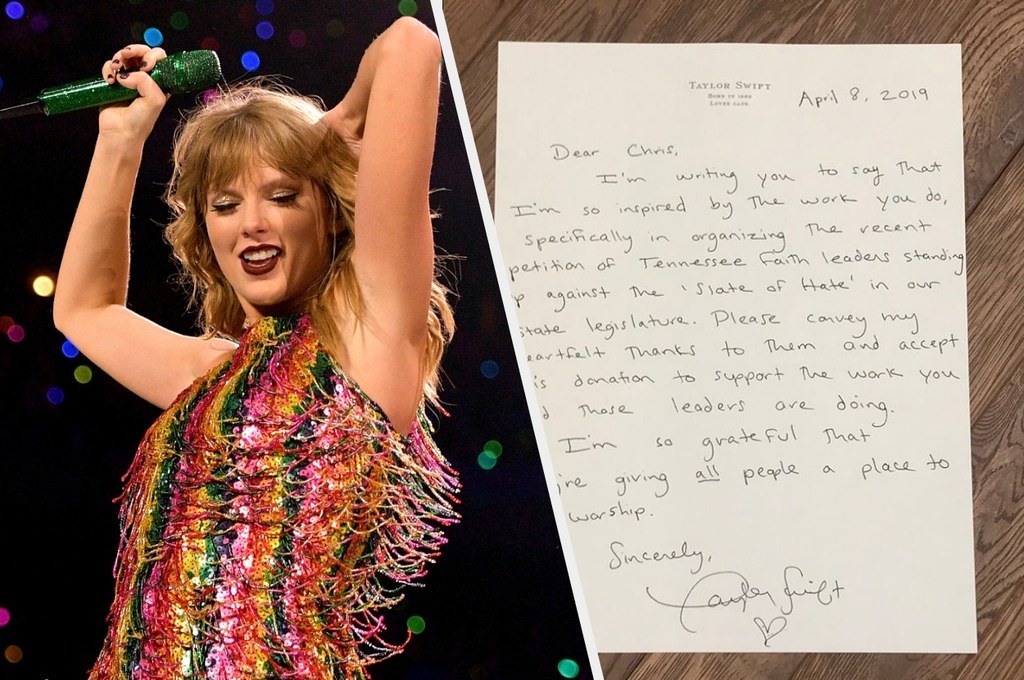 TAYLOR SWIFT
BORN IN 1989
LOVES CATS.
April 8, 2019
Dear Chris,
I'm writing you to say that
I'm so inspired by the work you do,
specifically in organizing the recent
petition of Tennessee faith leaders standing
p against the 'Slate of Hate' in our
state legislature. Please convey my
eartfelt thanks to them and accept
is donation to support the work you
d those leaders are doing.
I'm so grateful that
're giving all people a place to
worship.
Sincerely,
Taylor Swift